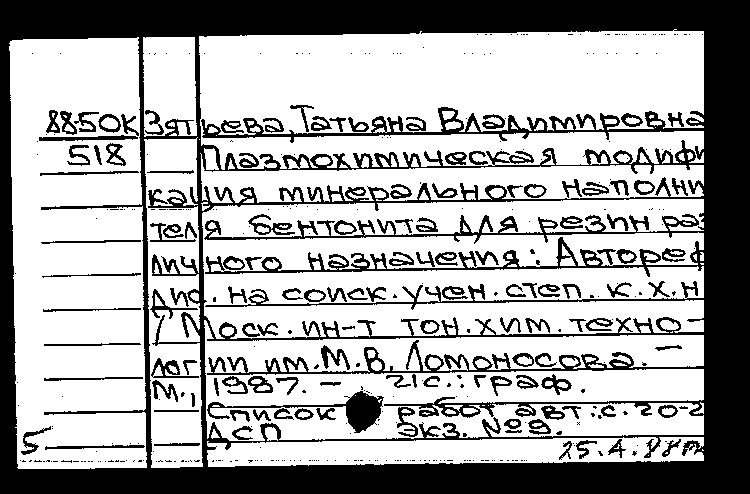 88-50К Зятьева, Татьяна Владимировна
518 Плазмохимическая модифи
кация минерального наполни
теля бентонита для резин раз
личного назначения: Автореф
дис. на соиск. учен. степ. к.х.н
/ Моск. ин-т тон. хим. техно-
логии им. М.В. Ломоносова. —
М., 1987. — 21с.: граф.
Список работ авт.: с. 20-2
ДСП экз. №9.
5 25.4.88